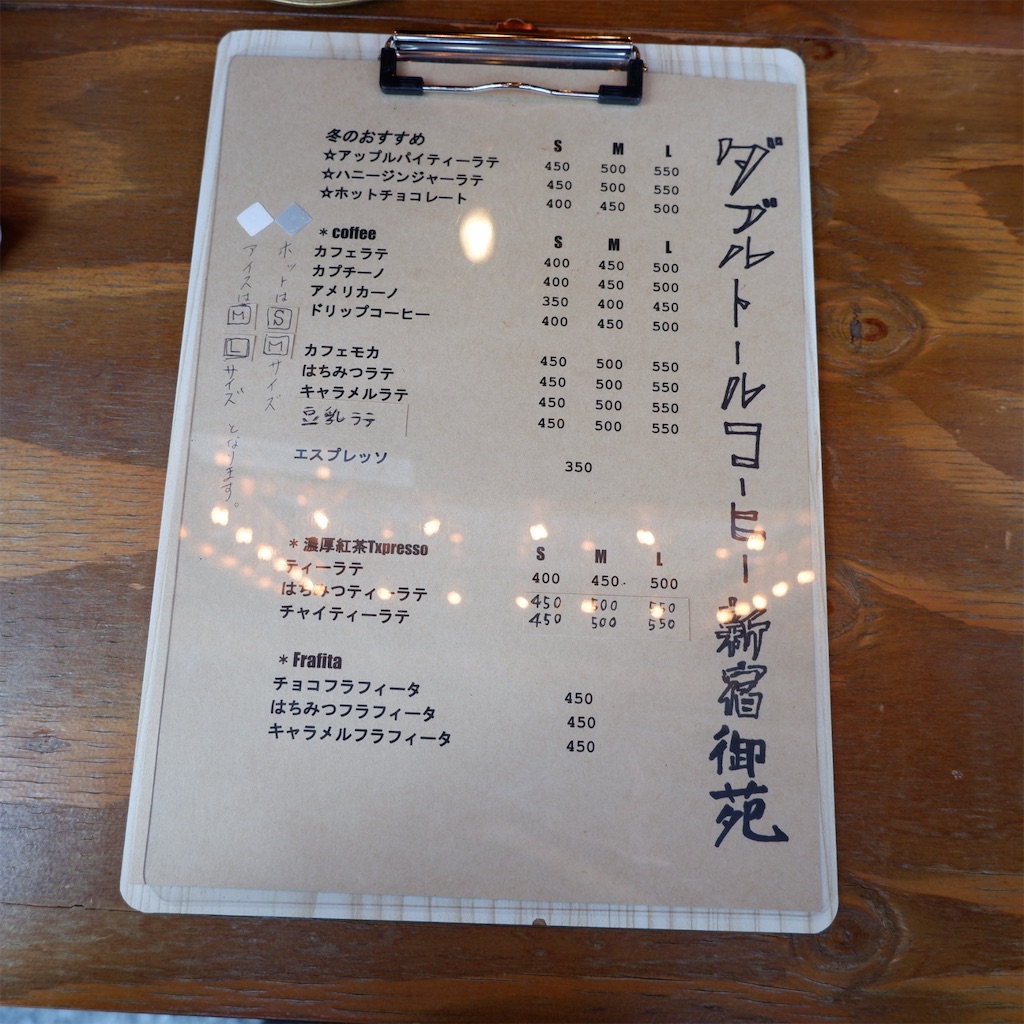 ダブルトールコーヒー新宿御苑
冬のおすすめ S M L
☆アップルパイティーラテ 450 500 550
☆ハニージンジャーラテ 450 500 550
☆ホットチョコレート 400 450 500
*coffee S M L
カフェラテ 400 450 500
カプチーノ 400 450 500
アメリカーノ 350 400 450
ドリップコーヒー 400 450 500
カフェモカ 450 500 550
はちみつラテ 450 500 550
キャラメルラテ 450 500 550
豆乳ラテ 450 500 550
エスプレッソ 350
*濃厚紅茶Txpresso S M L
ティーラテ 400 450 500
はちみつティーラテ 450 500 550
チャイティーラテ 450 500 550
*Frafita
チョコフラフィータ 450
はちみつフラフィータ 450
キャラメルフラフィータ 450
ホットは S M サイズ
アイスは M L サイズ となります。